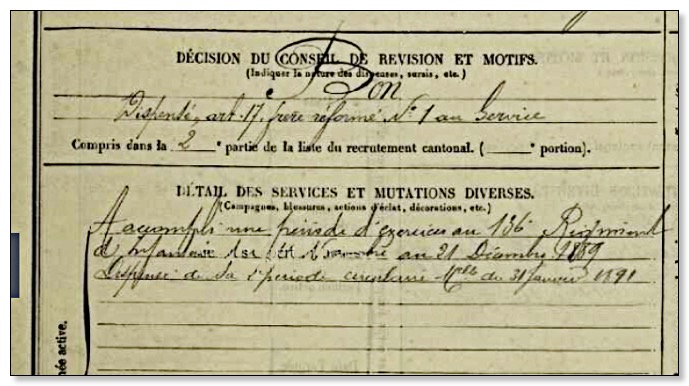 DÉCISION DU CONSEIL DE REVISION ET MOTIFS.
(Indiquer la nature des dispenses, sursis, etc.)
Bon
Dispensé, art. 17. frere réformé N° 1 au Service
Compris dans la 2e partie de la liste du recrutement cantonal. (____e portion).
DÉTAIL DES SERVICES ET MUTATIONS DIVERSES.
(Campagnes, blessures, actions d'éclat, décorations, etc.)
A accompli une période d'exercices au 136e Régiment
d'Infanterie du Novembre au 21 Décembre 1889
Dispensé de la 2e période circulaire Melle du 31 Janvier 1891
née active.